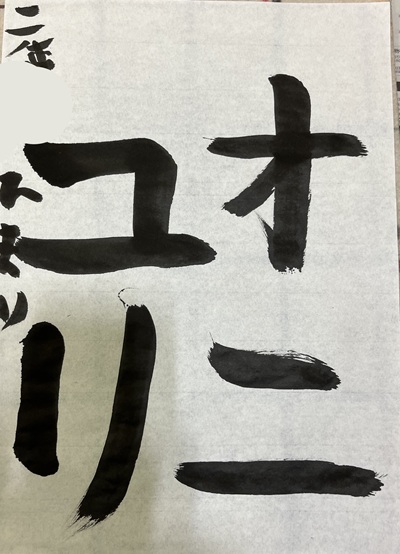 オニ
ユリ
二年